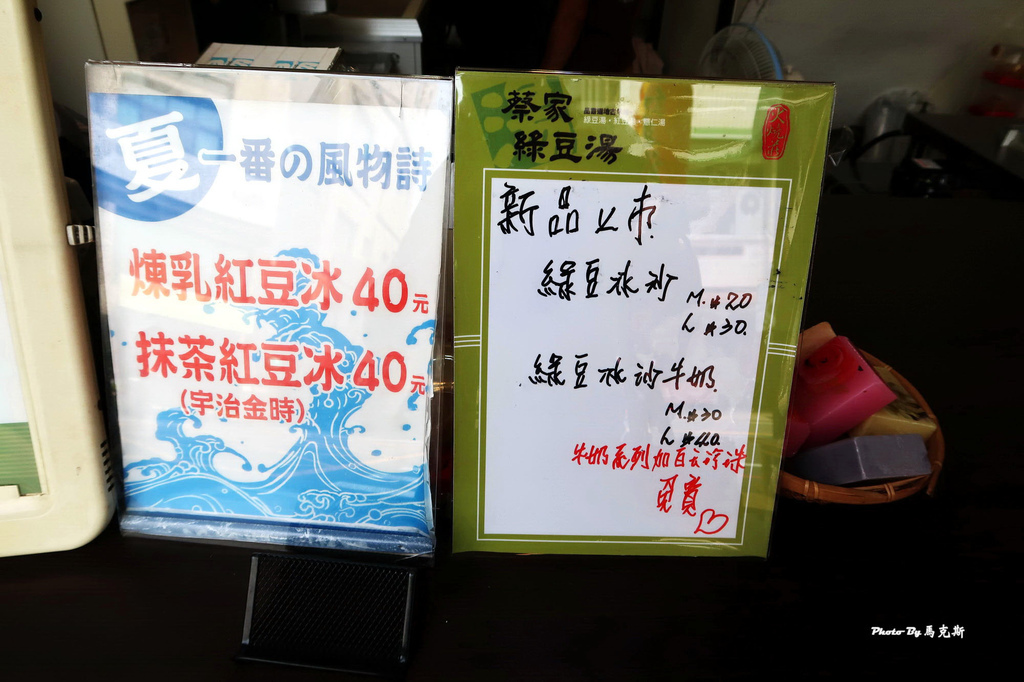 夏一番の風物詩
煉乳紅豆冰40元
抹茶紅豆冰40元
(宇治金時)
蔡家
綠豆湯
綠豆湯·紅豆湯·薏仁湯
新品上市
綠豆冰沙
M.#20
L #30.
綠豆冰沙牛奶
M.#30
L #40.
牛奶系列加白云冷冰
免費
Photo By 馬克斯